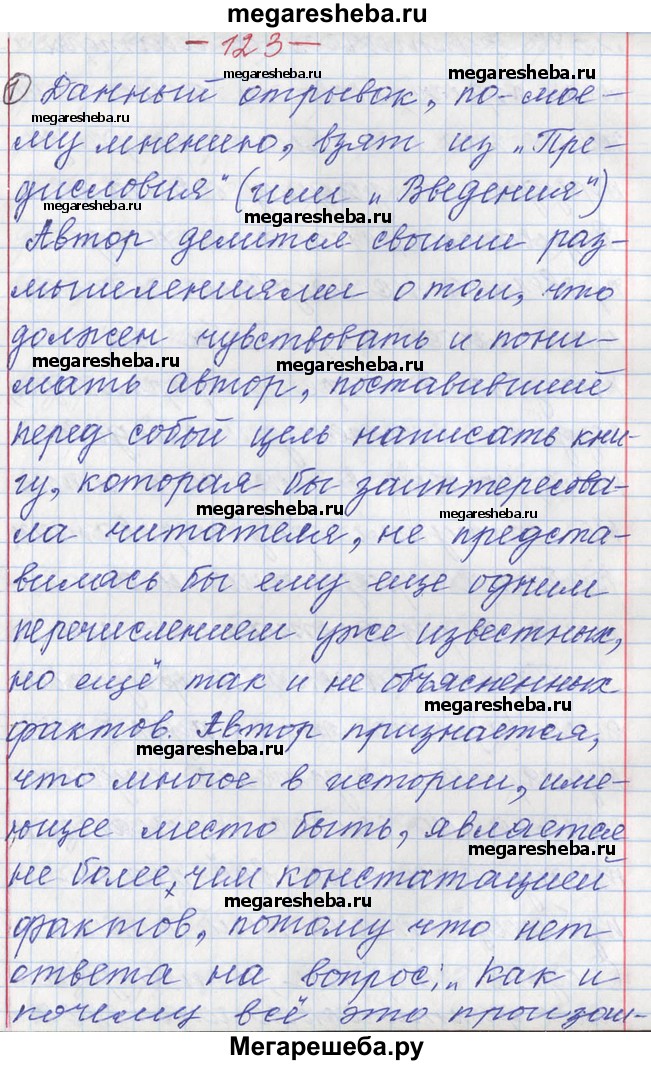 megaresheba.ru
- 123 -
megaresheba.ru
megaresheba.ru
1) Данный отрывок, по-мое-
megaresheba.ru
му мнению, взят из „Пре-
дисловия" (или „Введения")
megaresheba.ru
megaresheba.ru
Автор делится своими раз-
мышлениями о том, что
должен чувствовать и пони-
megaresheba.ru
megaresheba.ru
мать автор, поставивший
перед собой цель написать кни-
гу, которая бы заинтересова-
megaresheba.ru
megaresheba.ru
ла читателя, не предста-
вилась бы ему еще одним
перечислением уже известных,
но ещё так и не объясненных
megaresheba.ru
фактов. Автор признается,
megaresheba.ru
что многое в истории, име-
ющее место быть, является
megaresheba.ru
не более, чем констатацией
megaresheba.ru
фактов, потому что нет
ответа на вопрос: „Как и
почему всё это произош-
Мегарешеба.ру